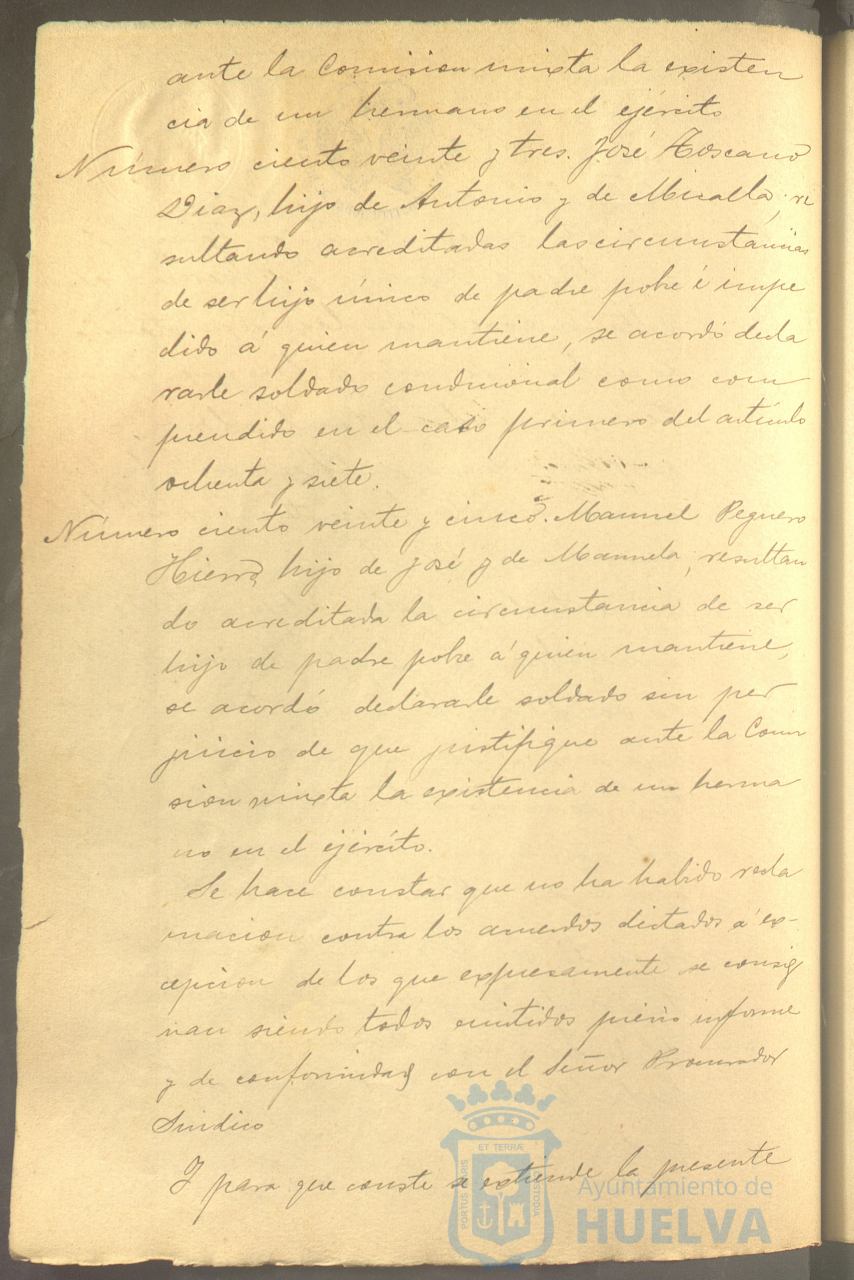 ante la Comision mixta la existen
cia de un hermano en el ejército
Número ciento veinte y tres. José Toscano
Diaz, hijo de Antonio y de Micalla, re
sultando acreditadas las circunstancias
de ser hijo único de padre pobre é impe
dido á quien mantiene, se acordó decla
rarle soldado condicional como com
prendido en el caso primero del artículo
ochenta y siete.
Número ciento veinte y cinco. Manuel Peguero
Hierro, hijo de José y de Manuela, resultan
do acreditada la circunstancia de ser
hijo de padre pobre á quien mantiene,
se acordó declararle soldado sin per
juicio de que justifique ante la Comi
sion mixta la existencia de un herma
no en el ejército.
Se hace constar que no ha habido recla
macion contra los acuerdos dictados á ex-
cepcion de los que expresamente se consig
nan siendo todos emitidos previo informe
y de conformidad con el Señor Procurador
Sindico
Y para que conste se extiende la presente
ET TERRÆ
PORTUS MARIS
CUSTODIA
Ayuntamiento de
HUELVA